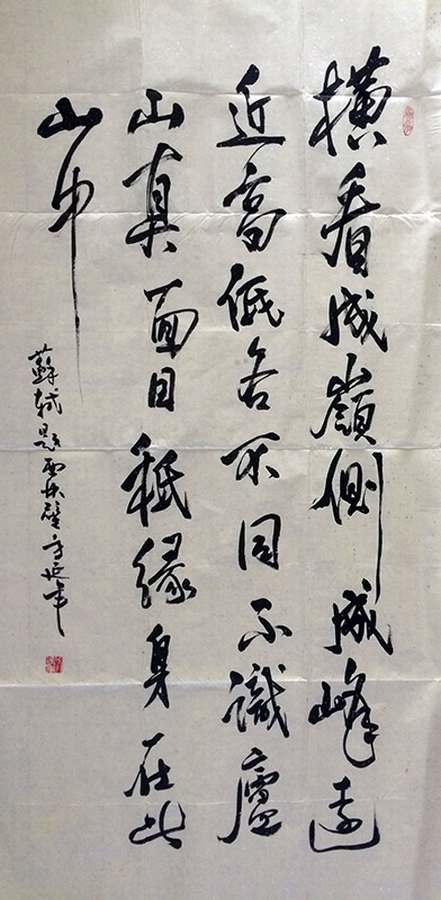 橫看成嶺側成峰遠
近高低各不同不識廬
山真面目秖緣身在此
山中
蘇軾題西林壁方延年